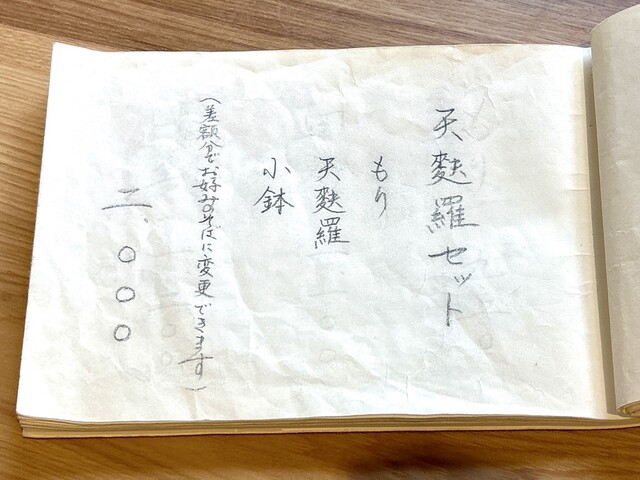 天麩羅セット
もり
天麩羅
小鉢
(差額分でお好みのそばに変更できます)
二、〇〇〇